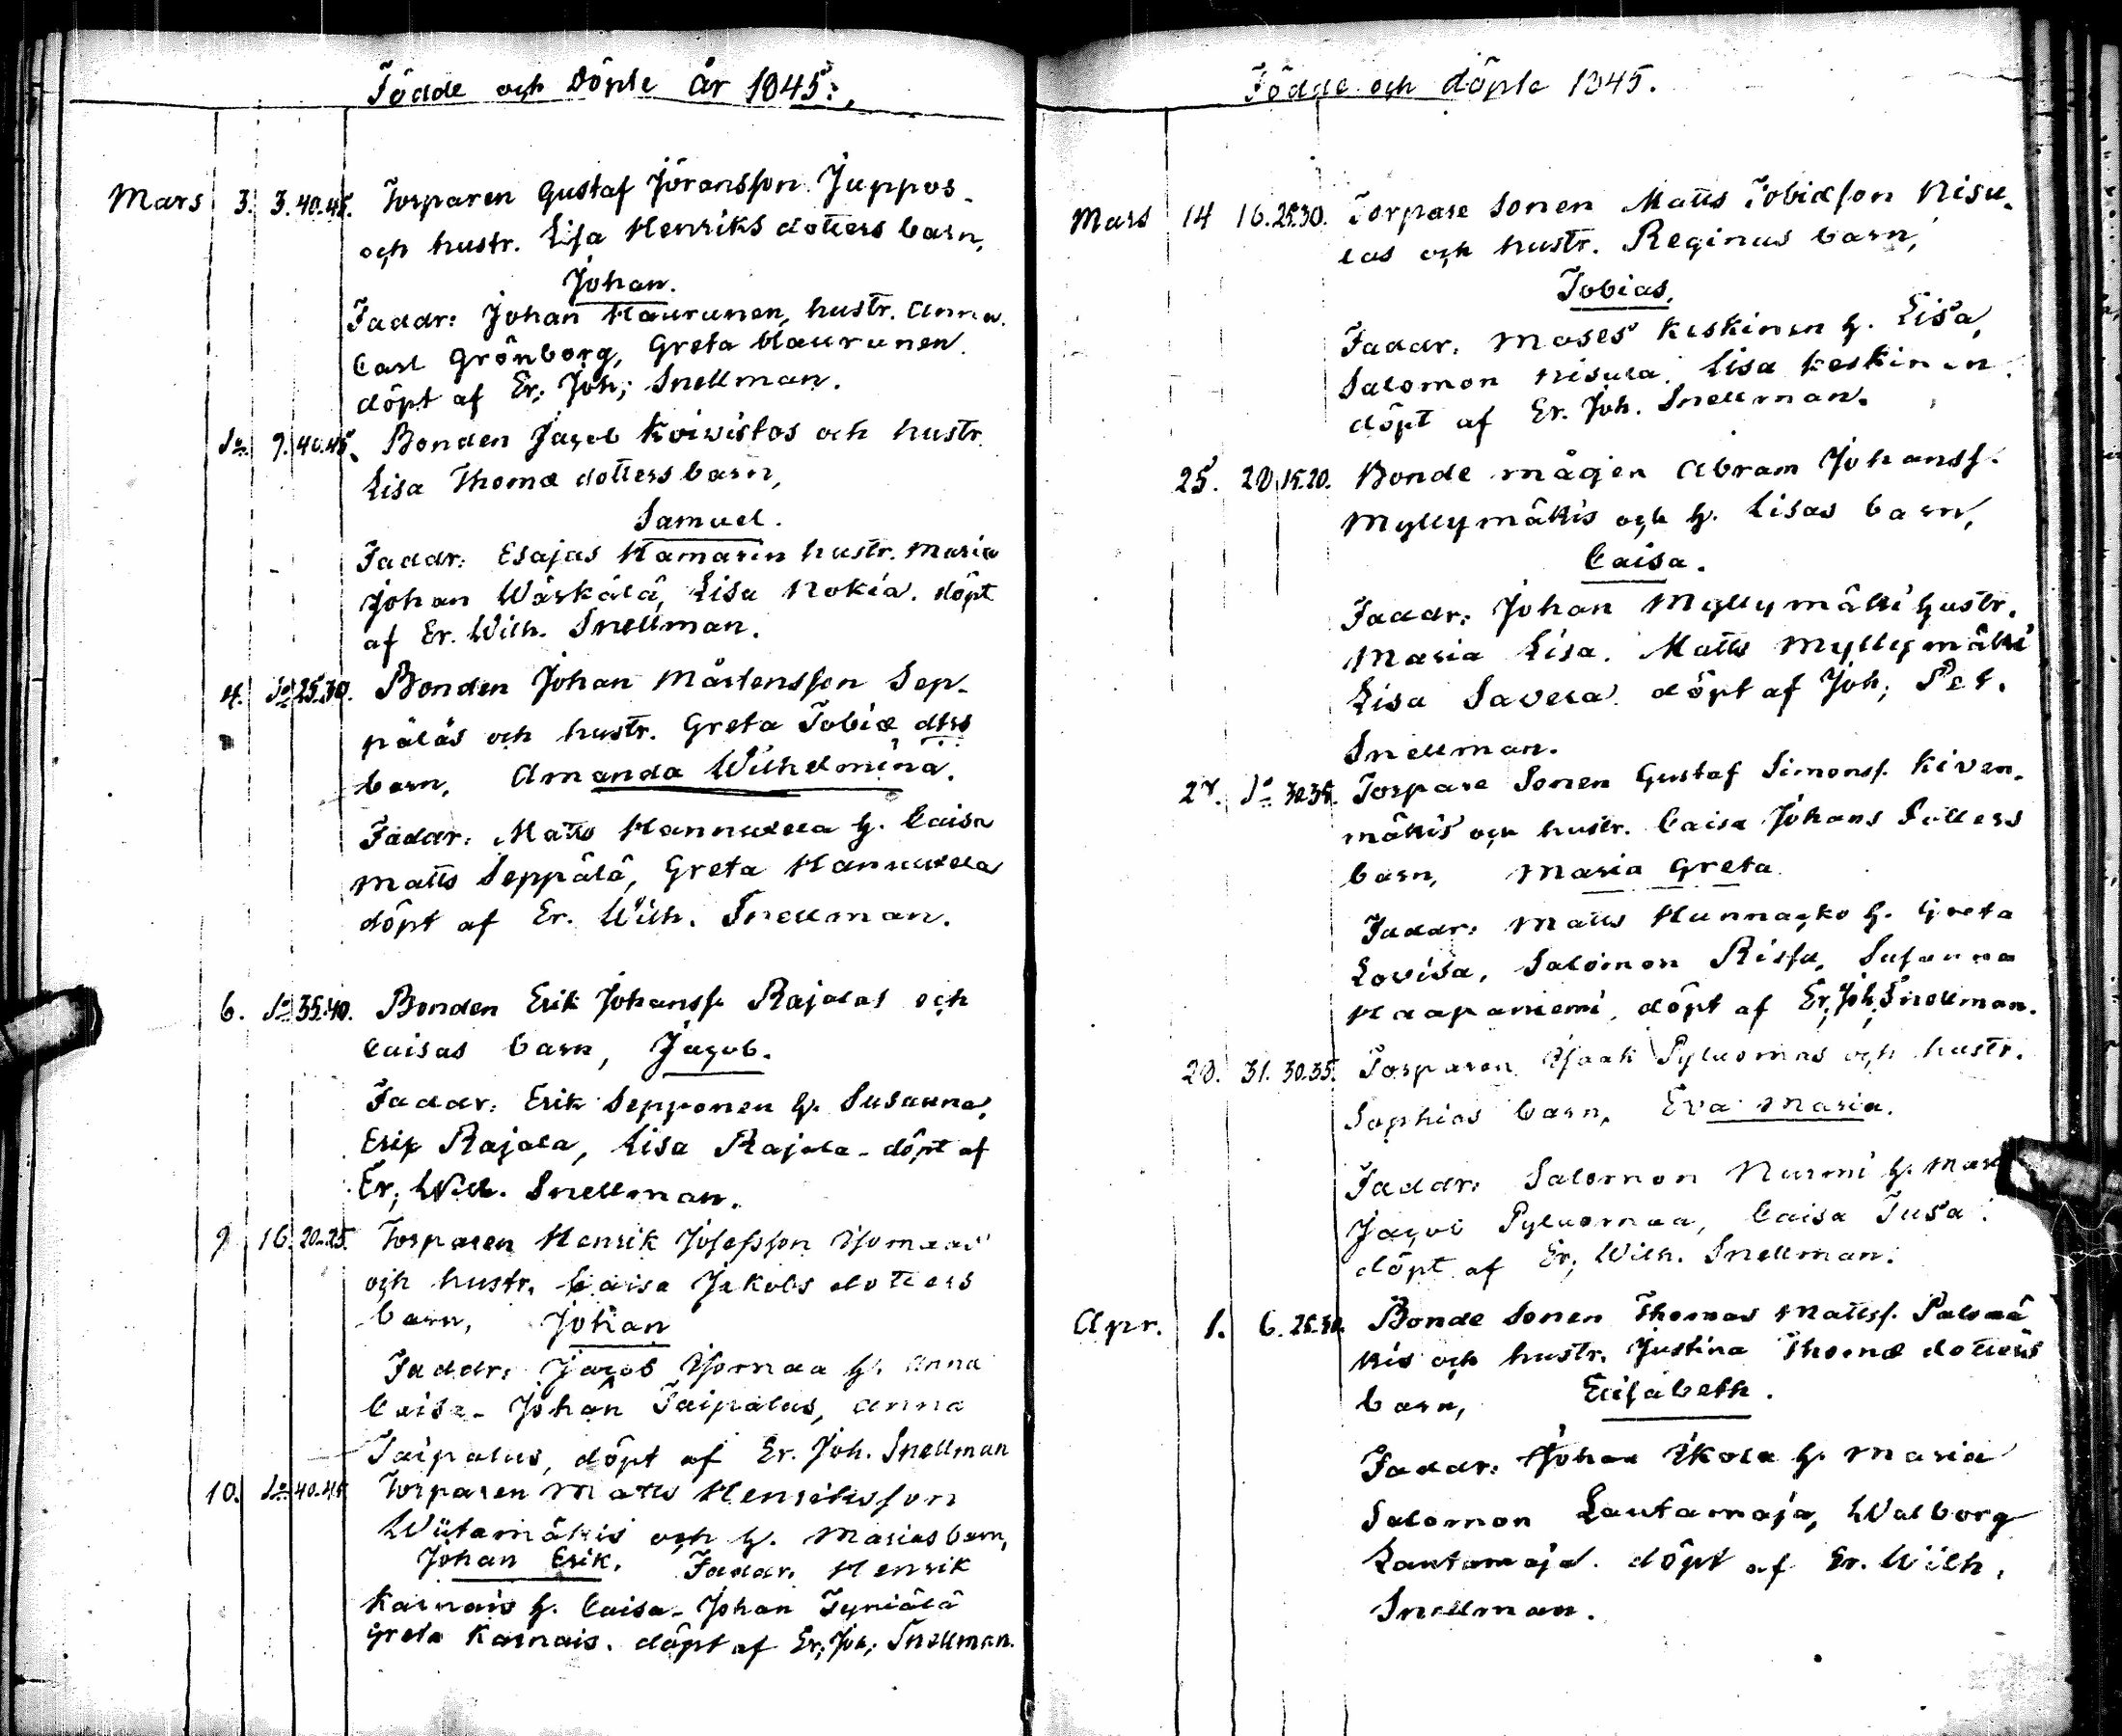 Födde och Döpte år 1845.
Mars 3. 3. 40.45. Torparen Gustaf Jöransson Juppos
och hustr. Lisa Henriks dotters barn,
Johan.
Faddr: Johan Haurunen, hustr. Anna.
Carl Grönborg, Greta Haurunen.
döpt af Er. Joh; Snellman.
do. 9. 40.45. Bonden Jacob Koivistos och hustr.
Lisa Thomæ dotters barn,
Samuel.
Faddr: Esajas Hamarin hustr. Maria
Johan Wäskälä, Lisa Nokia. döpt
af Er. Wilh. Snellman.
4. do 25.30. Bonden Johan Mårtensson Sep-
päläs och hustr. Greta Tobiæ dtrs
barn, Amanda Wilhelmina.
Faddr: Matts Hannuksela h. Caisa
Matts Seppälä, Greta Hannuksela
döpt af Er. Wilh. Snellman.
6. do 35.40. Bonden Erik Johanss. Rajalas och
Caisas barn, Jacob.
Faddr: Erik Sepponen h. Susanna,
Erik Rajala, Lisa Rajala - döpt af
Er; Wilh. Snellman.
9 16. 20.25. Torparen Henrik Josefsson Isomaas
och hustr. Caisa Jakobs dotters
barn, Johan
Faddr: Jacob Isomaa h. Anna
Caisa - Johan Taipalus, Anna
Taipalus, döpt af Er. Joh. Snellman
10. do 40.45 Torparen Matts Henriksson
Wiitamäkis och h. Marias barn,
Johan Erik. Faddr. Henrik
Karnais h. Caisa - Johan Tyniälä
Greta Karnais. döpt af Er; Joh; Snellman.
Födde och döpte 1845.
Mars 14 16. 25.30. Torpare sonen Matts Tobiæson Nisu-
las och hustr. Reginas barn,
Tobias.
Faddr: Moses Keskinen h. Lisa,
Salomon Nisula. Lisa Keskinen.
döpt af Er. Joh. Snellman.
25. 28. 15.20. Bonde mågen Abram Johanss.
Myllymäkis och h. Lisas barn,
Caisa.
Faddr: Johan Myllymäki hustr.
Maria Lisa. Matts Myllymäki
Lisa Savela döpt af Joh; Pet.
Snellman.
27. do 30.35. Torpare Sonen Gustaf Simonss. Kiven-
mäkis och hustr. Caisa Johans Dotters
barn, Maria Greta
Faddr: Matts Hunnacko h. Greta
Lovisa, Salomon Rissa, Susanna
Haapaniemi, döpt af Er; Joh; Snellman.
28. 31. 30.35. Torparen Isaak Pyluomas och hustr.
Sophias barn, Eva Maria.
Faddr: Salomon Nurmi h.
Jacob Pyluomaa, Caisa Tusa.
döpt af Er; Wilh. Snellman.
Apr. 1. 6. 25.30. Bonde Sonen Thomas Mattss. Palomä
kis och hustr. Justina Thomæ dotters
barn, Elisabeth.
Faddr: Johan Ikola h. Maria
Salomon Lautamaja, Walborg
Lautamaja. döpt af Er. Wilh.
Snellman.